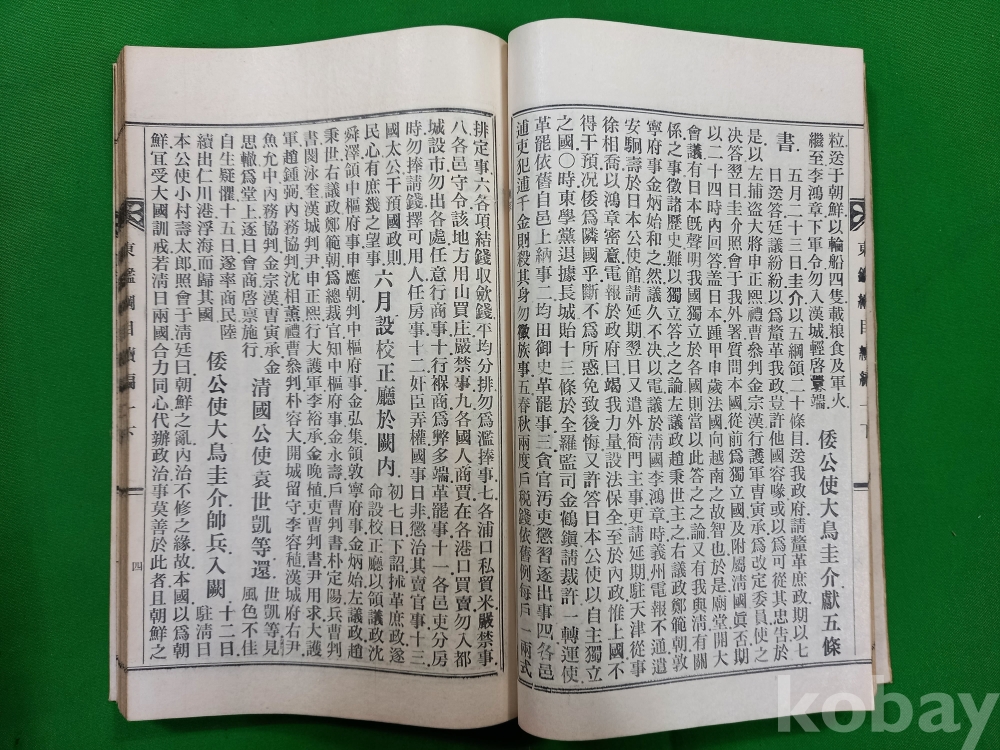 粒送于朝鮮以輪船四隻載粮食及軍火
繼至李鴻章下軍令勿入漢城輕啓釁端
倭公使大鳥圭介獻五條
書
五月二十三日圭介以五綱領二十條目送我政府請釐革庶政期以七
日送答廷議紛紛以爲釐革我政豈許他國容喙或以爲可從其忠告於
是以左捕盜大將申正熙禮曹參判金宗漢行護軍曺寅承爲改定委員使之
决答翌日圭介照會于我外署質問本國從前爲獨立國及附屬淸國眞否期
以二十四時內回答盖日本踵甲申歲法國向越南之故智也於是廟堂開大
會議有日本旣聲明我國爲獨立國則當以此答之之論又有我與淸有關
係之事徵諸歷史難以獨立答之之論左議政趙秉世主之右議政鄭範朝敦
寧府事金炳始和之然議久不决以電議於淸國李鴻章時義州電報不通遣
安駉壽於日本公使館請延期翌日又遣外衙門主事更請延期駐天津從事
徐相喬以鴻章密意電報於政府曰竭我力量設法保全至於內政惟上國不
得干預况倭爲隣國乎斷不爲所惑免致後悔又許答日本公使以自主獨立
之國○時東學黨退據長城貽十三條於全羅監司金鶴鎭請裁許一轉運使
革罷依舊自邑上納事二均田御史革罷事三貪官汚吏懲習逐出事四各邑
逋吏犯逋千金則殺其身勿徵族事五春秋兩度戶稅錢依舊例每戶一兩式
排定事六各項結錢取斂錢平均分排勿爲濫捧事七各浦口私貿米嚴禁事
八各邑守令該地方用山買庄嚴禁事九各國人商賈在各港口買賣勿入都
城設市勿出各處任意行商事十行褓商爲弊多端革罷事十一各邑吏分房
時勿捧請錢擇可用人任房事十二奸臣弄權國事日非懲治其賣官事十三
國太公干預國政則
民心有庶幾之望事
六月設校正廳於闕內
初七日下詔抹革庶政遂
命設校正廳以領議政沈
舜澤領中樞府事申應朝判中樞府事金弘集領敦寧府事金炳始左議政趙
秉世右議政鄭範朝爲總裁官知中樞府事金永壽戶曹判書朴定陽兵曹判
書閔泳奎漢城判尹申正熙行大護軍李裕承金晚植吏曹判書尹用求大護
軍趙鍾弼內務協判沈相薰禮曹參判朴容大開城留守李容稙漢城府右尹
魚允中內務協判金宗漢曺寅承金
思轍爲堂上逐日會商啓禀施行
淸國公使袁世凱等還
世凱等見
風色不佳
自生疑懼十五日遂率商民陸
續出仁川港浮海而歸其國
倭公使大鳥圭介師兵入闕
十二日
駐淸日
本公使小村壽太郎照會于淸廷曰朝鮮之亂內治不修之緣故本國以爲朝
鮮宜受大國訓戒若淸日兩國合力同心代辦政治事莫善於此者且朝鮮之
東鑑綱目續編
十下
四
kobay